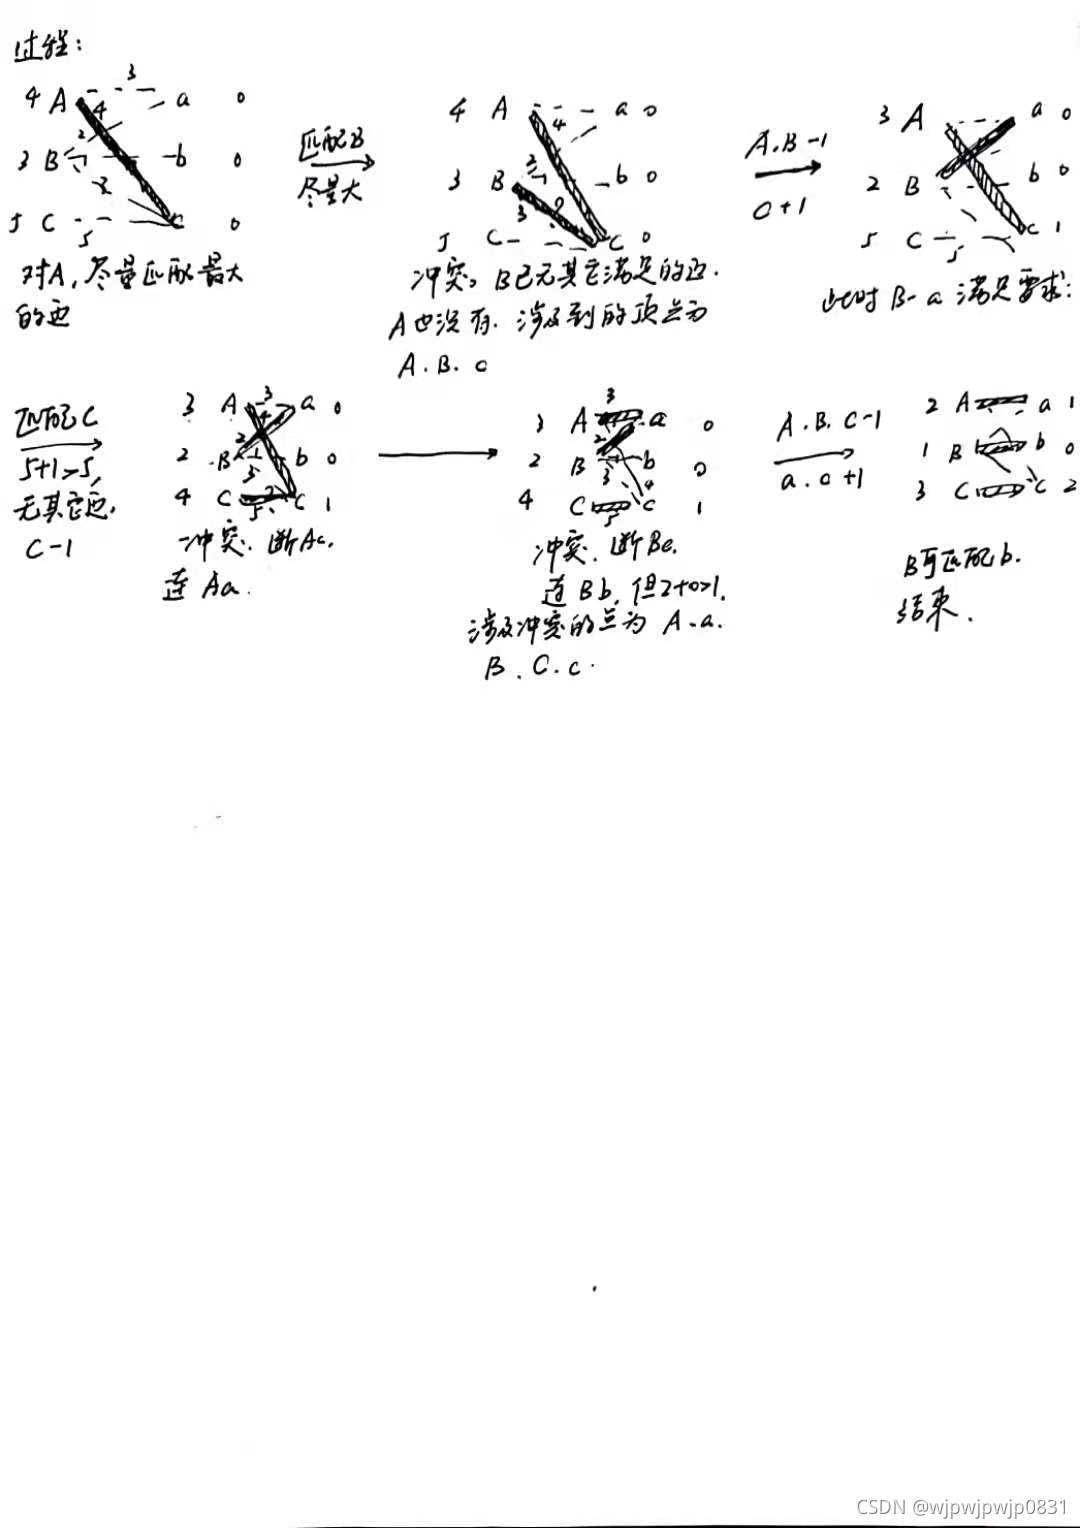 过程:
3
4 A a 0
4
2
3 B 1 b 0
3
5 C c 0
5
对A,尽量匹配最大
的边
匹配B
尽量大
4 A a 0
4
2
3 B 1 b 0
3
5 C c 0
冲突。B已无其它满足的边.
A也没有.涉及到的顶点为
A.B.c
A.B-1
c+1
3 A a 0
2 B b 0
5 C c 1
5
此时B-a满足要求:
匹配C
5+1>5,
无其它边,
C-1
3 A 3 a 0
4
2
2 B 1 b 0
3
4 C c 1
5
冲突.断Ac.
连Aa.
3
3 A a 0
2
2 B b 0
3 4
4 C c 1
5
冲突.断Ba.
连Bb,但2+0>1.
涉及冲突的点为A.a.
B.C.c.
A.B.C-1
a.c+1
2 A a 1
1 B b 0
3 C c 2
B可匹配b.
结束.
CSDN @wjpwjpwjp0831